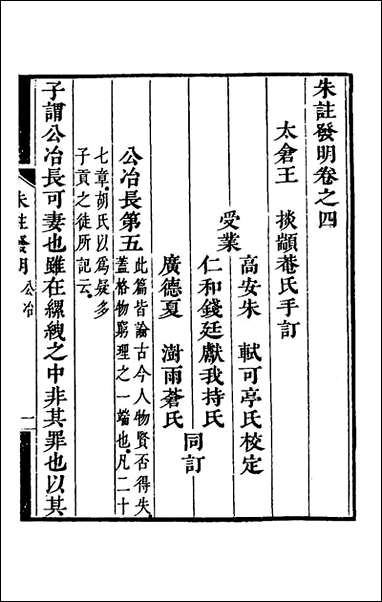 朱註發明卷之四
太倉王 掞顓菴氏手訂
高安朱 軾可亭氏校定
受業
仁和錢廷獻我持氏
同訂
廣德夏 澍雨蒼氏
公冶長第五
此篇皆論古今人物賢否得失
蓋格物窮理之一端也凡二十
七章胡氏以爲疑多
子貢之徒所記云
子謂公冶長可妻也雖在縲絏之中非其罪也以其
朱註發明 公冶 一